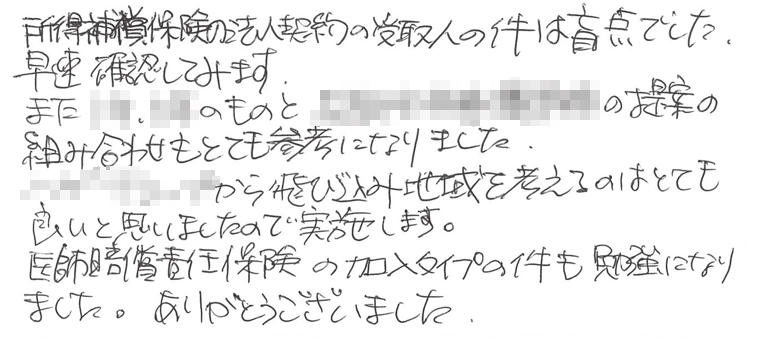 所得補償保険の法人契約の受取人の件は盲点でした.
早速 確認してみます.
また のものと の提案の
組み合わせもとても参考になりました.
から飛び込み地域を考えるのはとても
良いと思いましたので実施します。
医師賠償責任保険 の加入タイプの件も 勉強になり
ました。ありがとうございました.